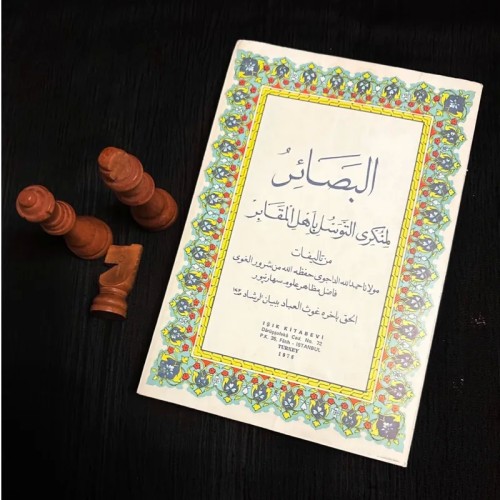 البَصَائِرُ
لِمُنكِرِى التَّوَسُّلِ بِأَهلِ المَقَابِرِ
من تأليفات
مولانا حمد الله الداجوى حفظه الله من شرور الغوى
فاضل مظاهر علوم سهارنپور
الحق بآخره غوث العباد ببيان الرشاد
IŞIK KİTABEVİ
Darüşşafaka Cad. No. 72
P.K. 35, Fâtih - ISTANBUL
TURKEY
1976